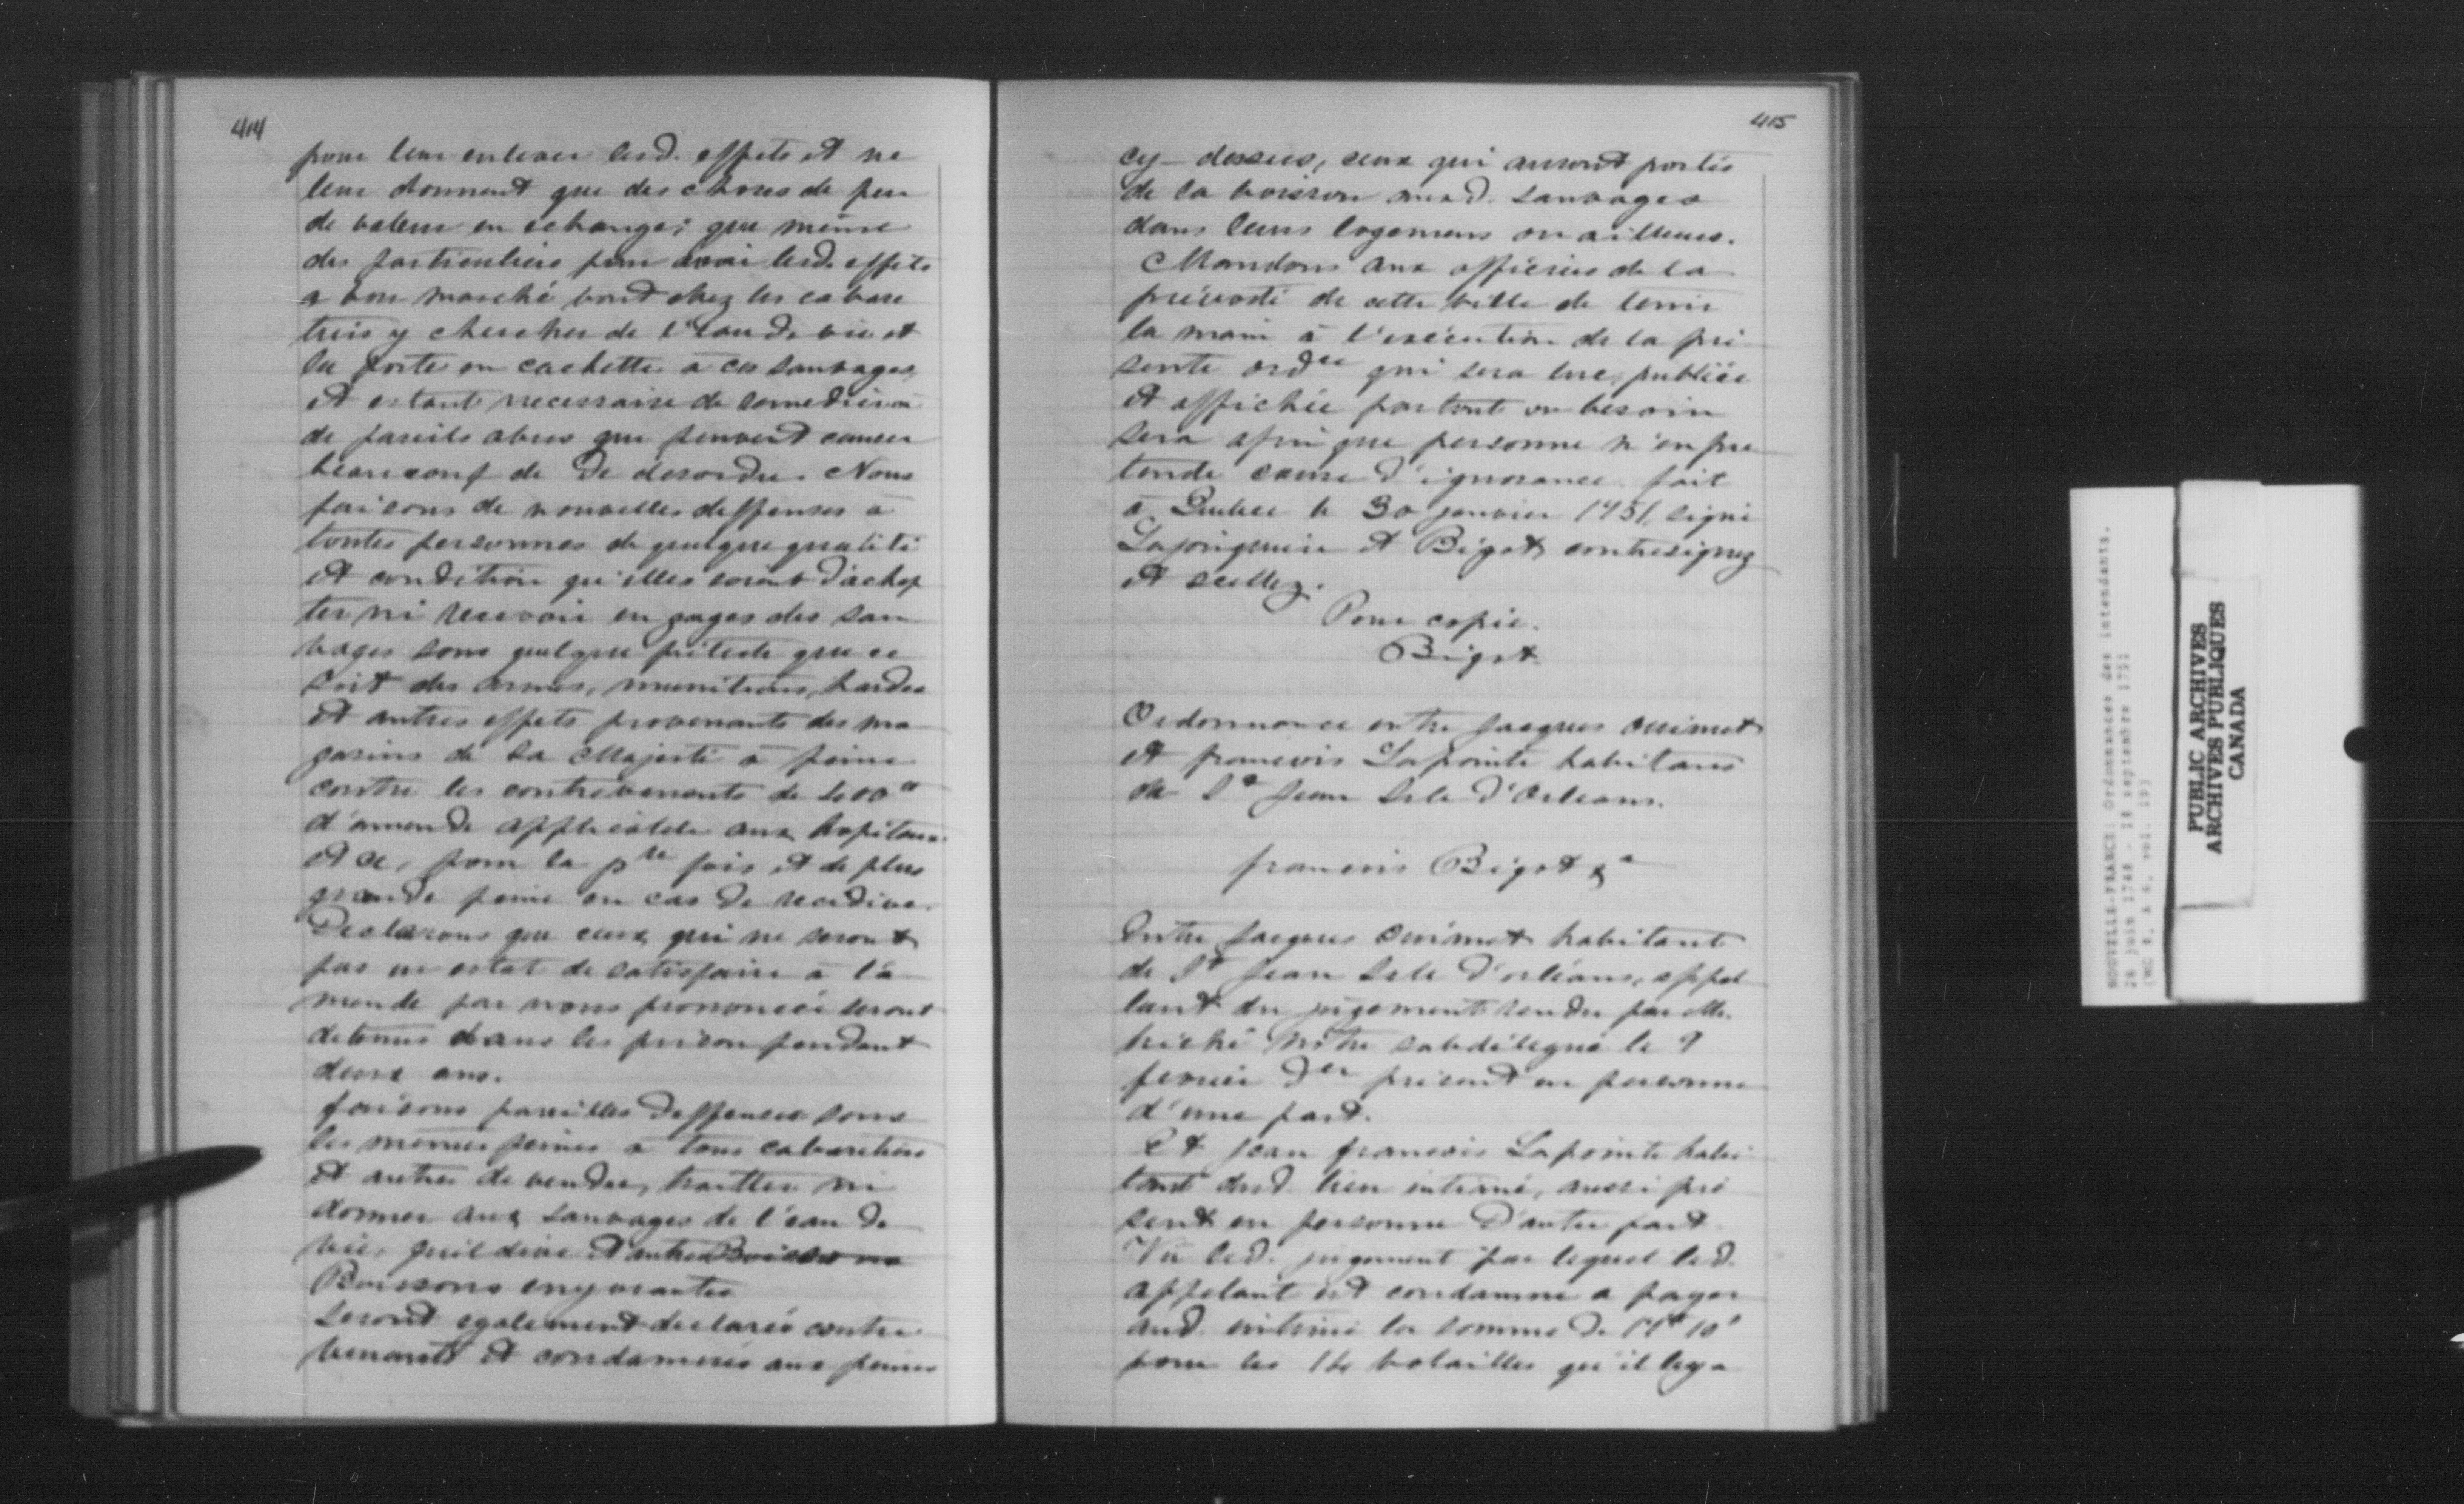 414
pour leur enlever lesd. effets et ne
leur donnent que des choses de peu
de valeur en echange; que même
des particuliers pour avoir lesd. effets
a bon marché vont chez les cabare
tiers y chercher de l'eau de vie et
la porte en cachette a ces sauvages,
et estant necessaire de remedier a
de pareils abus que peuvent causer
beaucoup de de desordre. Nous
faisons de nouvelles deffenses à
toutes personnes de quelque qualité
et condition qu'elles soient d'achep
ter ni recevoir en gages des sau
vages sous quelque pretexte que ce
soit des armes, munitions, hardes
et autres effets provenants des ma
gasins de Sa Majesté à peine
contre les contrevenants de 400"
d'amende applicable aux hopitaux
et ce, pour la pre fois et de plus
grande peine en cas de recedive.
Declarons que ceux qui ne seront
pas en estat de satisfaire à l'a
mende par nous prononcée seront
detenus dans les prison pendant
deux ans.
faisons pareilles deffenses sous
les mesmes peines a tous cabaretiers
et autres de vendre, traitter ni
donner aux sauvages de l'eau de
vie, guildive et autres Boissons
Boissons enyvrantes
seront egalement declarés contre
venants et condamnés aux peines
415
cy-dessus, ceux qui auront portés
de la boisson auxd. sauvages
dans leurs logemens ou ailleurs.
Mandons aux officiers de la
prévosté de cette ville de tenir
la main à l'exécution de la pré
sente ordce qui sera lue, publiée
et affichée partout ou besoin
sera afin que personne n'en pre
tende cause d'ignorance. fait
a Quebec le 30 janvier 1751, signé
Lajonquiere et Bigot, contresignez
et scellez.
Pour copie.
Bigot
Ordonnance entre Jacques Ouimet
et francois Lapointe habitans
de St Jean Isle d'Orleans.
francois Bigot &a
Entre Jacques Ouimet habitant
de St Jean Isle d'orléans, appel
lant du jugement rendu par Me.
hiché notre subdélégué le 9
fevrier der présent en personne
d'une part.
Et Jean francois Lapointe habi
tant dud. lieu intimé, aussi pré
sent en personne d'autre part.
Vu led. jugement par lequel led.
appelant est condamné a payer
aud. intimé la somme de
pour les 14 volailles qu'il luy a
NOUVELLE-FRANCE: Ordonnances des intendants.
26 juin 1749 - 10 septembre 1751
(MG 8, A 6, vol. 19)
PUBLIC ARCHIVES
ARCHIVES PUBLIQUES
CANADA